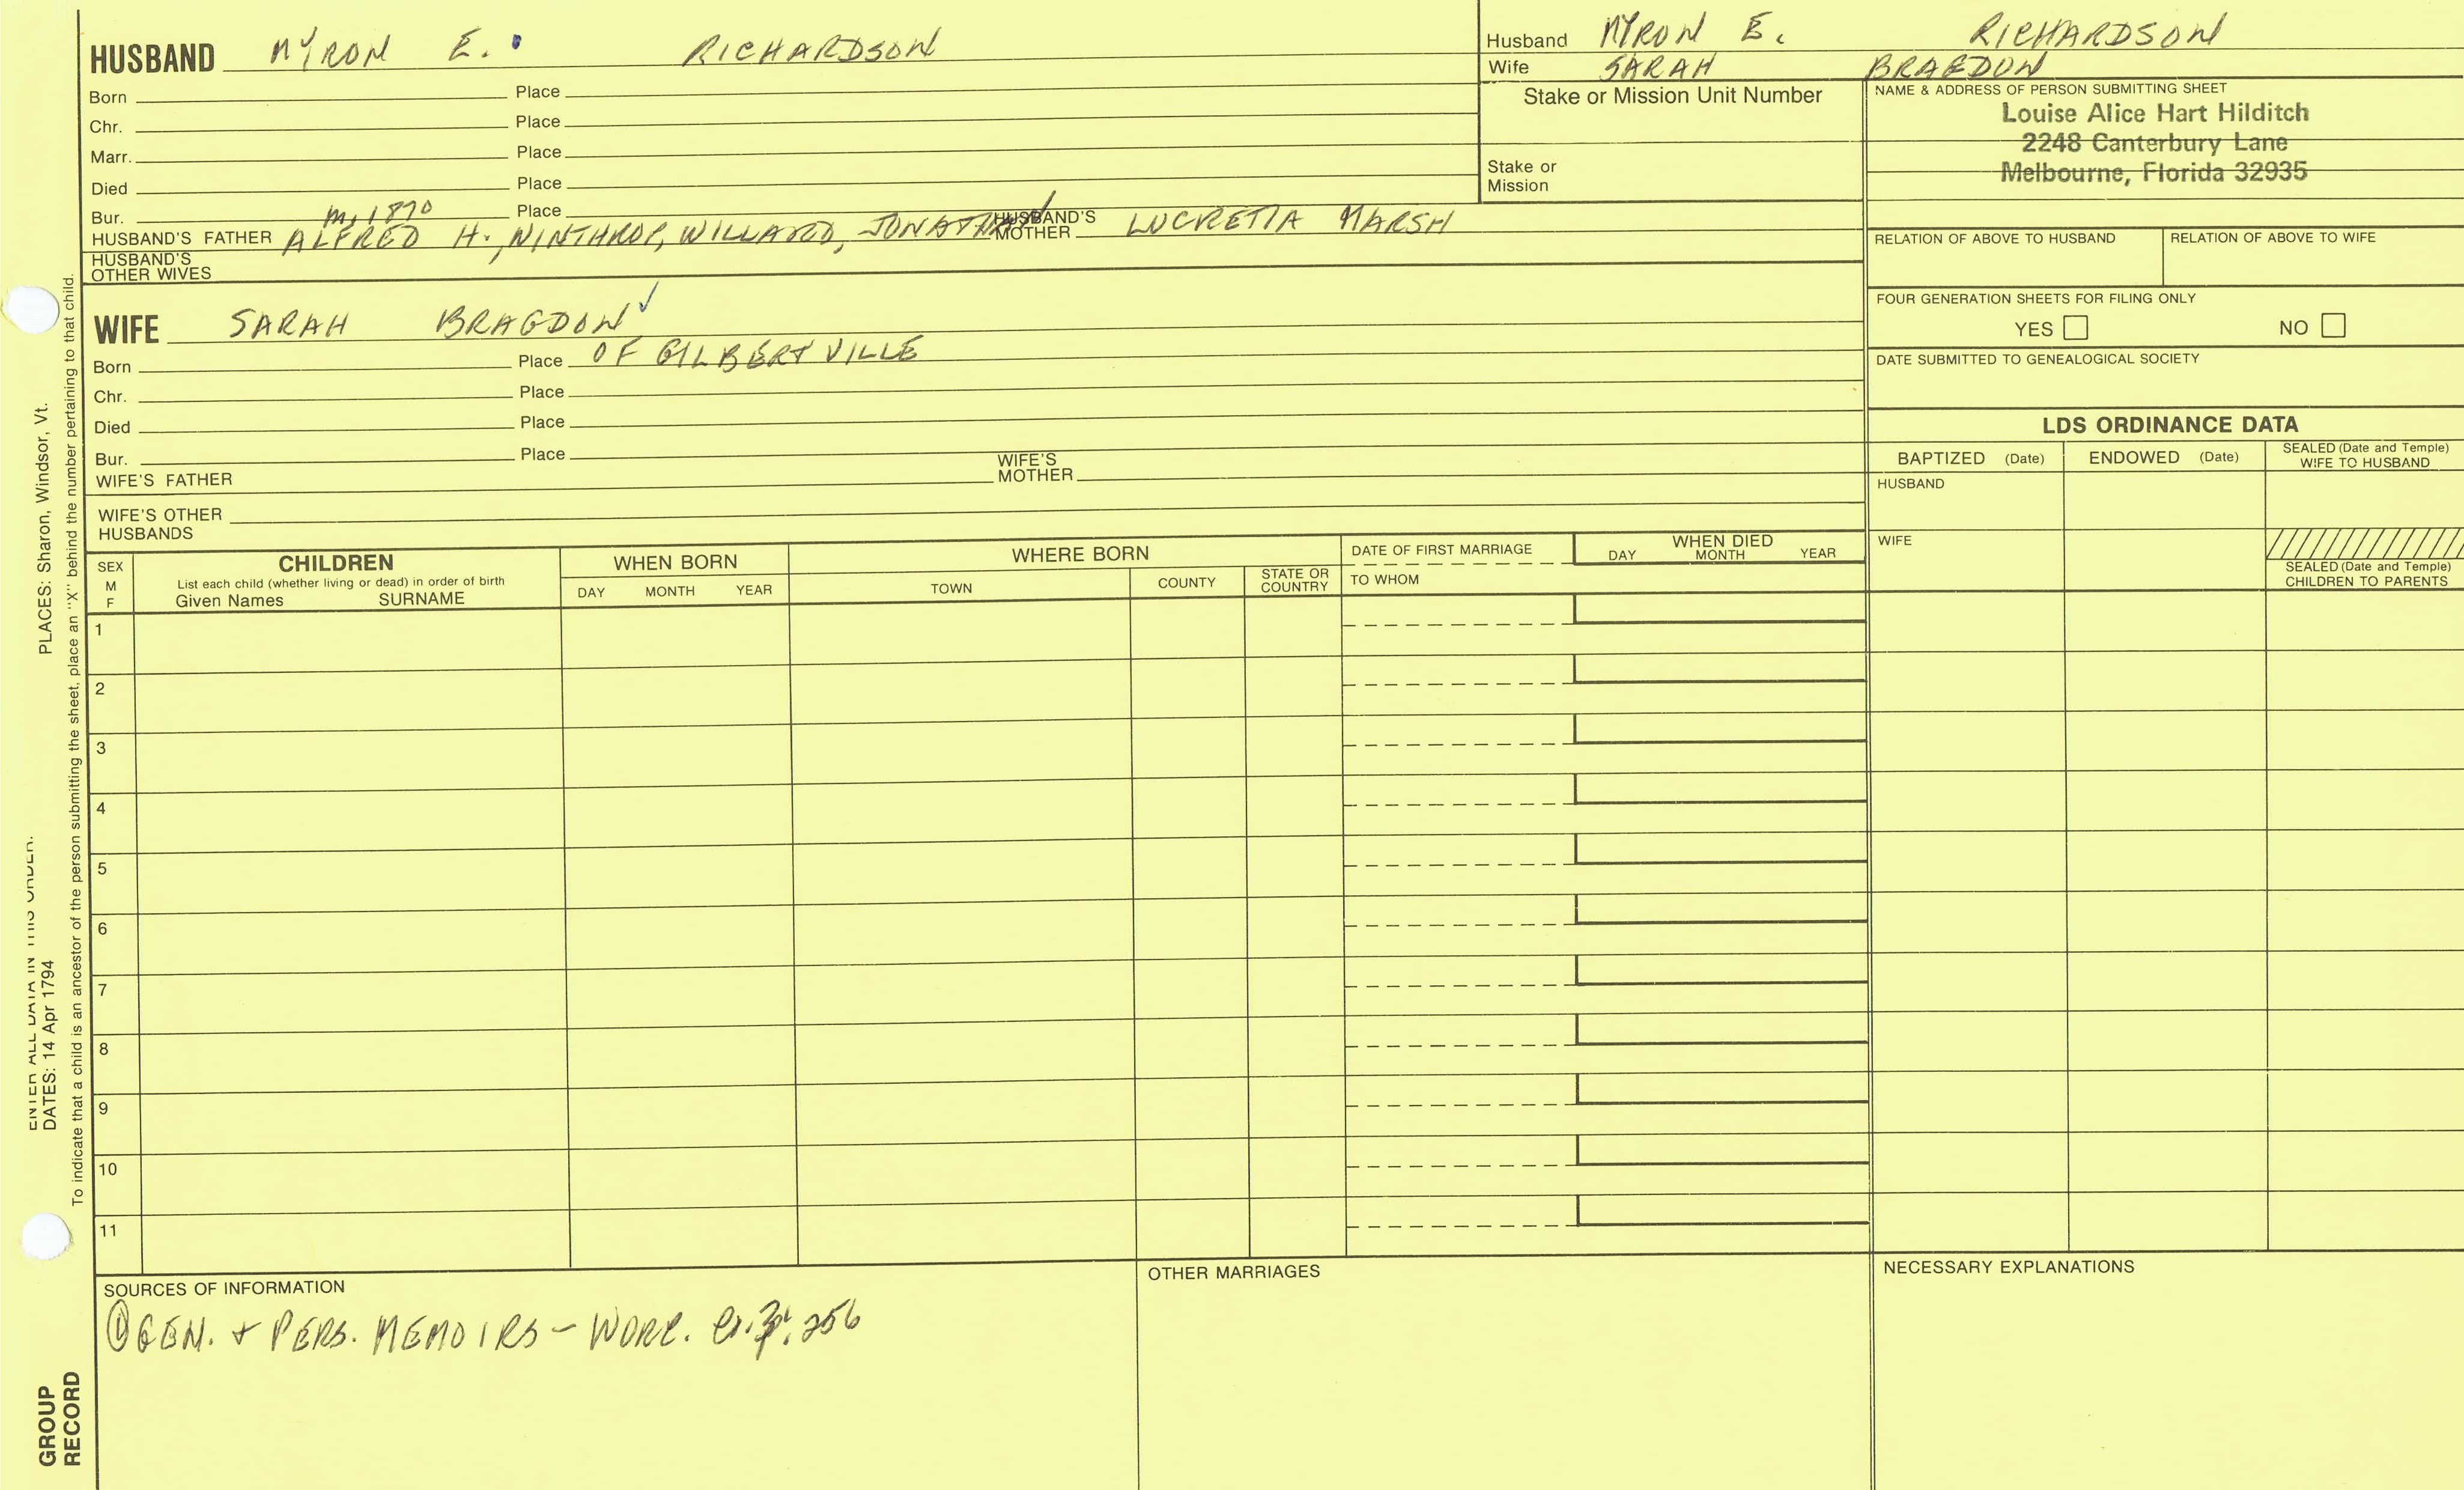 HUSBAND MYRON E. RICHARDSON
Born Place
Chr. Place
Marr. Place
Died Place
Bur. Place
m. 1870
HUSBAND'S FATHER ALFRED H., WINTHROP, WILLARD, JONATHAN HUSBAND'S MOTHER LUCRETIA MARSH
HUSBAND'S OTHER WIVES
WIFE SARAH BRAGDON ✓
Born Place OF GILBERTVILLE
Chr. Place
Died Place
Bur. Place
WIFE'S FATHER WIFE'S MOTHER
WIFE'S OTHER HUSBANDS
Husband MYRON E. RICHARDSON
Wife SARAH BRAGDON
Stake or Mission Unit Number
Stake or Mission
NAME & ADDRESS OF PERSON SUBMITTING SHEET
Louise Alice Hart Hilditch
2248 Canterbury Lane
Melbourne, Florida 32935
RELATION OF ABOVE TO HUSBAND RELATION OF ABOVE TO WIFE
FOUR GENERATION SHEETS FOR FILING ONLY
YES NO
DATE SUBMITTED TO GENEALOGICAL SOCIETY
LDS ORDINANCE DATA
BAPTIZED (Date) ENDOWED (Date) SEALED (Date and Temple) WIFE TO HUSBAND
HUSBAND
WIFE
SEALED (Date and Temple) CHILDREN TO PARENTS
SEX M F
CHILDREN
List each child (whether living or dead) in order of birth
Given Names SURNAME
WHEN BORN
DAY MONTH YEAR
WHERE BORN
TOWN COUNTY STATE OR COUNTRY
DATE OF FIRST MARRIAGE
TO WHOM
WHEN DIED
DAY MONTH YEAR
1
2
3
4
5
6
7
8
9
10
11
SOURCES OF INFORMATION
① GEN. + PERS. MEMOIRS - WORC. 256
OTHER MARRIAGES
NECESSARY EXPLANATIONS
ENTER ALL DATA IN THIS ORDER:
DATES: 14 Apr 1794 PLACES: Sharon, Windsor, Vt.
To indicate that a child is an ancestor of the person submitting the sheet, place an "X" behind the number pertaining to that child.
GROUP
RECORD